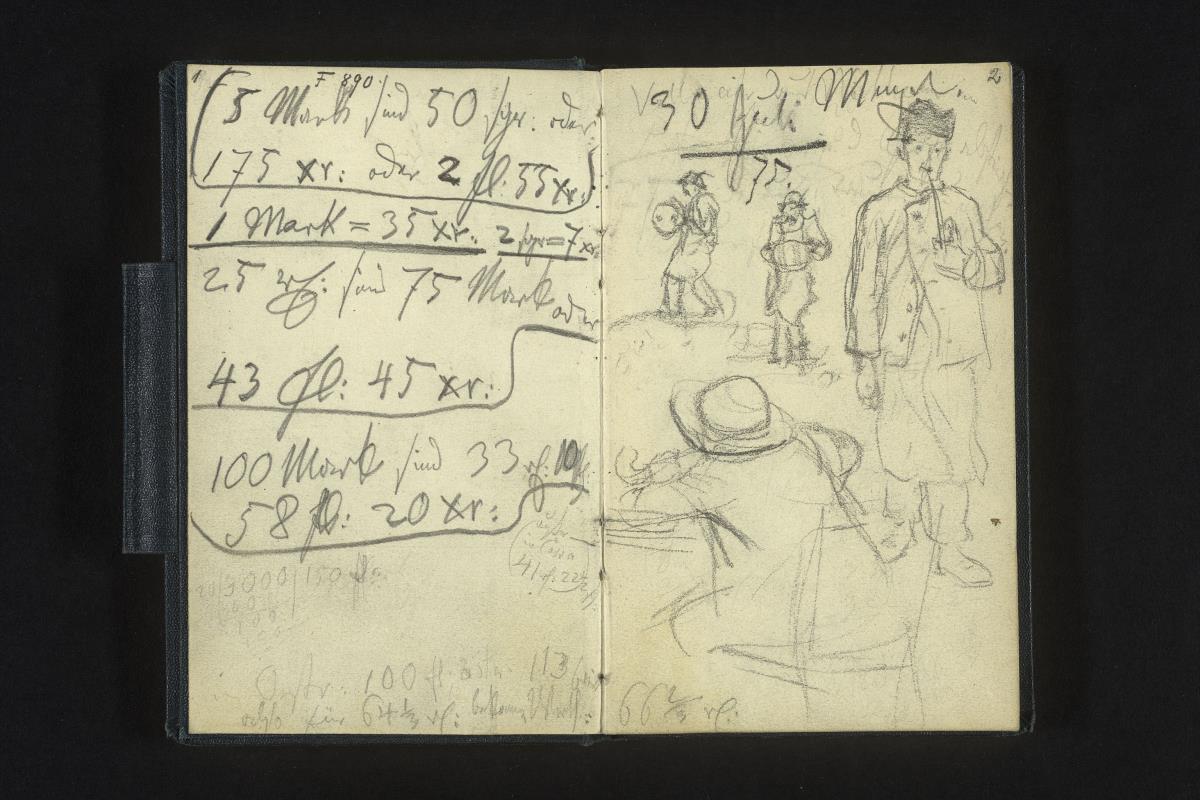 1
F 890.
5 Mark sind 50 sgr: oder
175 xr: oder 2 fl: 55 xr:
1 Mark = 35 xr: 2 sgr = 7 xr
25 rf: sind 75 Mark oder
43 fl: 45 xr:
100 Mark sind 33 rf: 10
58 fl: 20 xr:
20/3000/150 fl:
41 fl: 22
in Östr: 100 fl: 113
für 64 1/3 rf:
2
30 Juli
75.
66 2/3 rf: